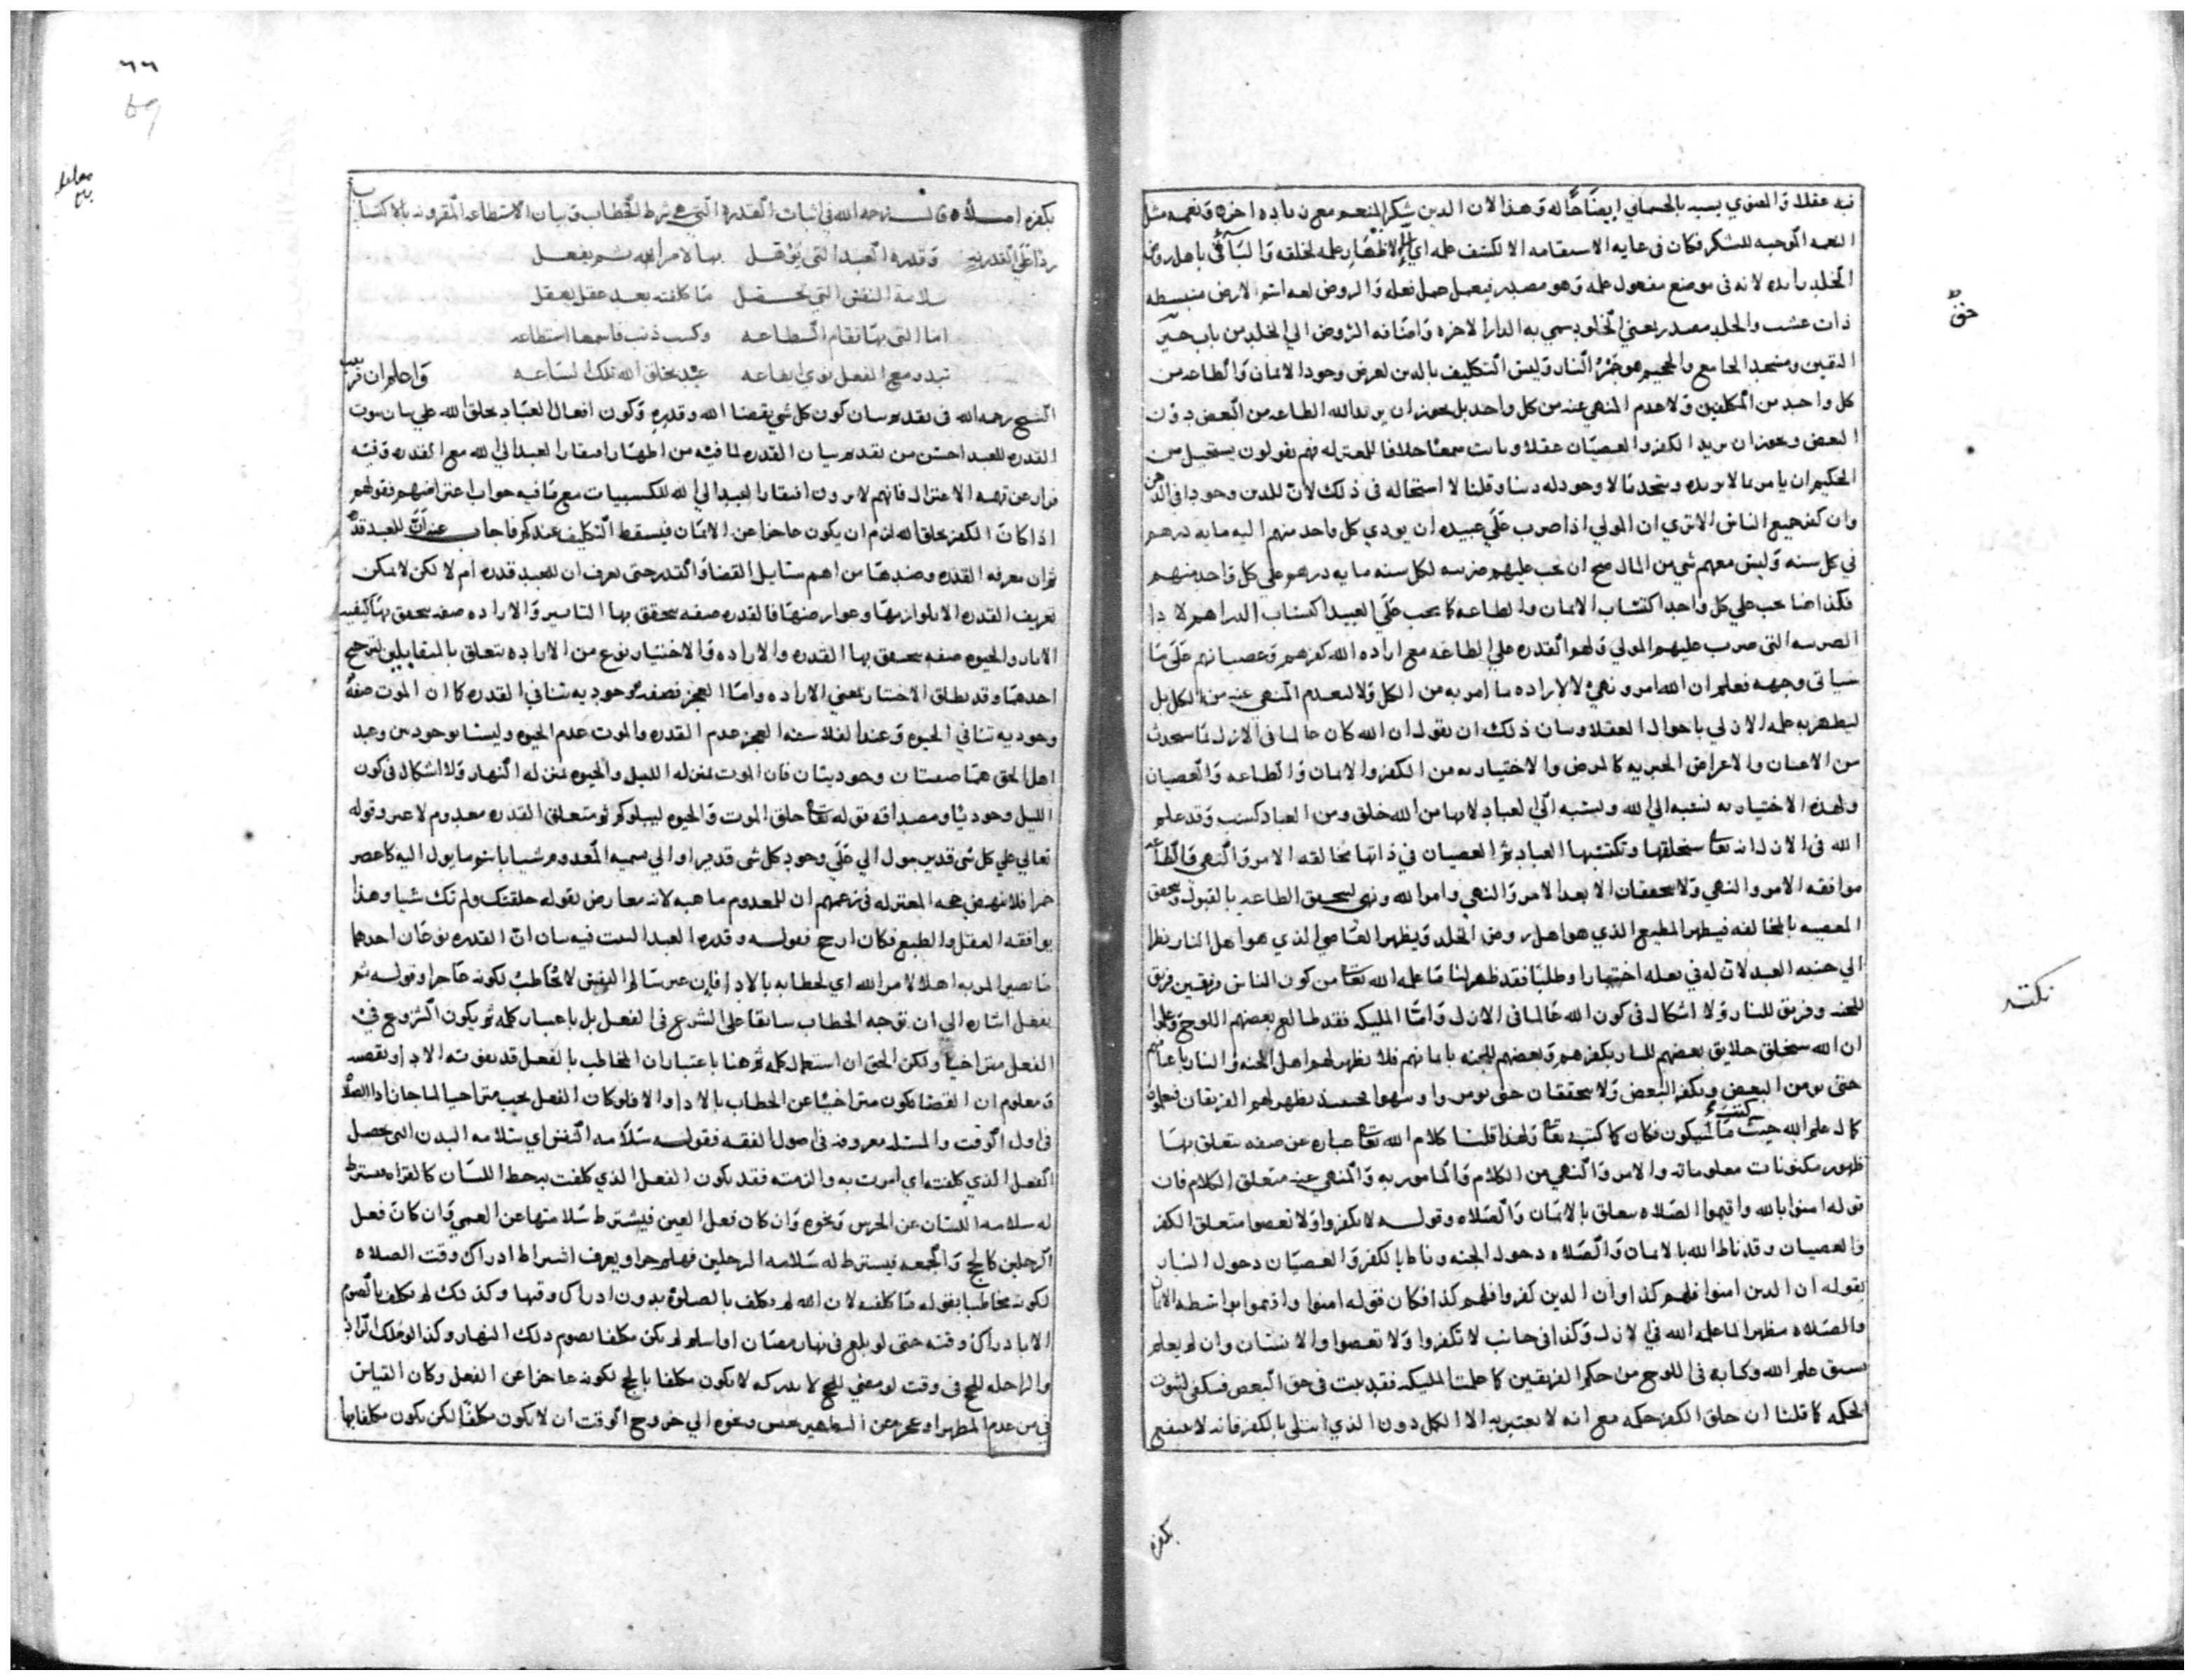 فيه عقلا والمعنوي يسمى بالجسماني ايضا حاله وهذا لان الدين شكر المنعم مع زياده اخره ونعمه مثل
النعمه الموجبه للشكر فكان في غايه الاستقامه الا لكشف علمه اي لاظهار علمه لخلقه والباقي باهل روض
الخلد زايده لانه في موضع مفعول علمه وهو مصدر فيعمل عمل فعله والروض لغه اسم الارض منبسطه
ذات عشب والخلد مصدر بمعني الخلود سمي به الدار الاخره واضافه الروض الي الخلد من باب خير
اليقين ومسجد الجامع والجحيم هو جمر النار وليس التكليف بالدين لغرض وجود الايمان والطاعه من
كل واحد من المكلفين ولا عدم المنهي عنه من كل واحد بل يجوز ان يريد الله الطاعه من البعض دون
البعض ويجوز ان يريد الكفر والعصيان عقلا وثابت سمعا خلافا للمعتزله فهم يقولون يستحيل من
الحكيم ان يامر بما لا يريده ويتحدثا لا وجود له دينا وقلنا لا استحاله في ذلك لان للدين وجودا في الذهن
وان كفر جميع الناس الا تري ان المولي اذا ضرب علي عبيده ان يودي كل واحد منهم اليه مايه درهم
في كل سنه وليس معهم شي من المال صح ان يجب عليهم ضريبه لكل سنه مايه درهم علي كل واحد منهم
فكذا هنا يجب علي كل واحد اكتساب الايمان والطاعه كما يجب علي العبيد اكتساب الدراهم لادا
الضريبه التي ضرب عليهم المولي ولهم القدره علي الطاعه مع اراده الله كفرهم وعصيانهم علي ما
سياتي وجهه فعلم ان الله امر ونهي لا لاراده ما امر به من الكل ولا لعدم المنهي عنه من الكل بل
ليظهر به علمه الازلي باحوال العقلا وبيان ذلك ان نقول ان الله كان عالما في الازل بما سيحدث
من الاعيان والاعراض الجبريه كالمرض والاختياريه من الكفر والايمان والطاعه والعصيان
ولهذه الاختياريه نسبه الي الله ونسبه الي العباد لانها من الله خلق ومن العباد كسب وقد علم
الله في الازل انه تعا سيخلقها وتكتسبها العباد ثم العصيان في ذاتها مخالفه الامر والنهي والطاعه
موافقه الامر والنهي ولا يتحققان الا بعد الامر والنهي وامر الله ونهي ليتحقق الطاعه بالقبول ويتحقق
المعصيه بالمخالفه فيظهر المطيع الذي هو اهل روض الخلد ويظهر العاصي الذي هو اهل النار نظرا
الي جنبه العبد لان له في فعله اختيارا وطلبا فقد ظهر لنا ما علمه الله تعا من كون الناس فريقين فريق
للجنه وفريق للنار ولا اشكال في كون الله عالما في الازل واما المليكه فقد طالع بعضهم اللوح وعلموا
ان الله سيخلق خلايق بعضهم للنار بكفرهم وبعضهم للجنه بايمانهم فلا يظهر لهم اهل الجنه والنار باعيانهم
حتي يومن البعض ويكفر البعض ولا يتحققان حتي يومروا وينهوا فحينيذ يظهر لهم الفريقان فيعلموا
كمال علم الله حيث كتب ما سيكون فكان كما كتبه تعا ولهذا قلنا كلام الله تعا عباره عن صفه يتعلق بها
ظهور مكنونات معلوماته والامر والنهي من الكلام والمامور به والمنهي عنه متعلق الكلام فان
قوله امنوا بالله واقيموا الصلاه متعلق بالايمان والصلاه وقوله لا تكفروا ولا تعصوا متعلق الكفر
والعصيان وقد ناط الله بالايمان والصلاه دخول الجنه وناط بالكفر والعصيان دخول النار
بقوله ان الذين امنوا فلهم كذا وان الذين كفروا فلهم كذا فكان قوله امنوا واقيموا بواسطه الايمان
والصلاه مظهرا لما علمه الله في الازل وكذا في جانب لا تكفروا ولا تعصوا والانسان وان لم يعلم
سبق علم الله وكتابه في اللوح من حكم الفريقين كما علمت المليكه فقد ثبت في حق البعض فيكفي لثبوت
الحكمه كما قلنا ان خلق الكفر حكمه مع انه لا يعتبر به الا الكل دون الذي ابتلي بالكفر فانه لا ينتفع
بكفره
حق
نكته
٦٦
69
بكفره اصلا قال رحمه الله في اثبات القدره التي هي شرط الخطاب وبيان الاستطاعه المقرونه بالاكتساب
ردا علي القدريه وقدره العبد التي تؤهل بها لامر الله ثم يفعل
سلامه النفس التي تحصل ما كلفته بعد عقل يعقل
اما التي بها تقام الطاعه وكسب ذنب فاسمها استطاعه
تبدو مع الفعل بوي ايقاعه عند يخلق الله تلك الساعه واعلم ان ترتيب
الشيخ رحمه الله في تقديم بيان كون كل شي بقضا الله وقدره وكون افعال العباد بخلق الله علي بيان ثبوت
القدره للعبد احسن من تقديم بيان القدره لما فيه من اظهار افتقار العبد الي الله مع القدره وفيه
فرار عن تهمه الاعتزال فانهم لا يرون افتقار العبد الي الله للكسبيات مع ما فيه جواب اعتراضهم بقولهم
اذا كان الكفر بخلق الله لزم ان يكون عاجزا عن الايمان فيسقط التكليف عندكم فاجاب عنه ان للعبد قدره
ثم ان معرفه القدره وضدها من اهم مسايل القضا والقدر حتي نعرف ان للعبد قدره ام لا لكن لا يمكن
تعريف القدره الا بلوازمها وعوارضها فالقدره صفه يتحقق بها التاثير والاراده صفه يتحقق بها كيفيه
الاثار والحيوه صفه يتحقق بها القدره والاراده والاختيار نوع من الاراده يتعلق بالمتقابلين لترجيح
احدهما وقد يطلق الاختيار بمعني الاراده واما العجز فصفه وجوديه تنافي القدره كما ان الموت صفه
وجوديه تنافي الحيوه وعند الفلاسفه العجز عدم القدره والموت عدم الحيوه وليسا بوجوديين وعند
اهل الحق هما صفتان وجوديتان فان الموت بمنزله الليل والحيوه بمنزله النهار ولا اشكال في كون
الليل وجوديا ومصداقه قوله تعا خلق الموت والحيوه ليبلوكم ثم متعلق القدره معدوم لا عين وقوله
تعالي علي كل شي قدير يؤل الي علي وجود كل شي قدير او الي تسميه المعدوم شيا باسم ما يول اليه كاعصر
خمرا فلا ينهض حجه المعتزله في زعمهم ان للمعدوم ماهيه لانه معارض بقوله خلقتك ولم تك شيا وهذا
يوافقه العقل والطبع فكان ارجح فقوله وقدره العبد البيت فيه بيان ان القدره نوعان احدهما
ما يصير المر به اهلا لامر الله اي لخطابه بالادا فان غير سالم النفس لا يخاطب لكونه عاجزا وقوله ثم
يفعل اشاره الي ان توجه الخطاب سابقا علي الشروع في الفعل بل باعتبار كلمه ثم يكون الشروع في
الفعل متراخيا ولكن الحق ان استعمال كلمه ثم هنا باعتبار ان المخاطب بالفعل قد يفوته الادا ويقضيه
ومعلوم ان القضا يكون متراخيا عن الخطاب بالادا والا فلو كان الفعل يجب متراخيا لما جاز ادا الصلاه
في اول الوقت والمسئله معروفه في اصول الفقه فقوله سلامه النفس اي سلامه البدن التي تحصل
الفعل الذي كلفته اي امرت به والزمته فقد يكون الفعل الذي كلفت به حظ اللسان كالقراه فيشترط
له سلامه اللسان عن الخرس ونحوه وان كان فعل العين فيشترط سلامتها عن العمي وان كان فعل
الرجلين كالحج والجمعه فيشترط له سلامه الرجلين فهلم جرا ويعرف اشتراط ادراك وقت الصلاه
لكونه مخاطبا بقوله ما كلفته لان الله لم يكلف بالصلوه بدون ادراك وقتها وكذلك لم يكلف بالصوم
الا بادراك وقته حتي لو بلغ في نهار رمضان او اسلم لم يكن مكلفا بصوم ذلك النهار وكذا لو ملك الزاد
والراحله للحج في وقت لو مضي للحج لا يدركه لا يكون مكلفا بالحج لكونه عاجزا عن الفعل وكان القياس
في من عدم المطهر او عجز عن التطهير بحبس ونحوه الي خروج الوقت ان لا يكون مكلفا لكن يكون مكلفا بها